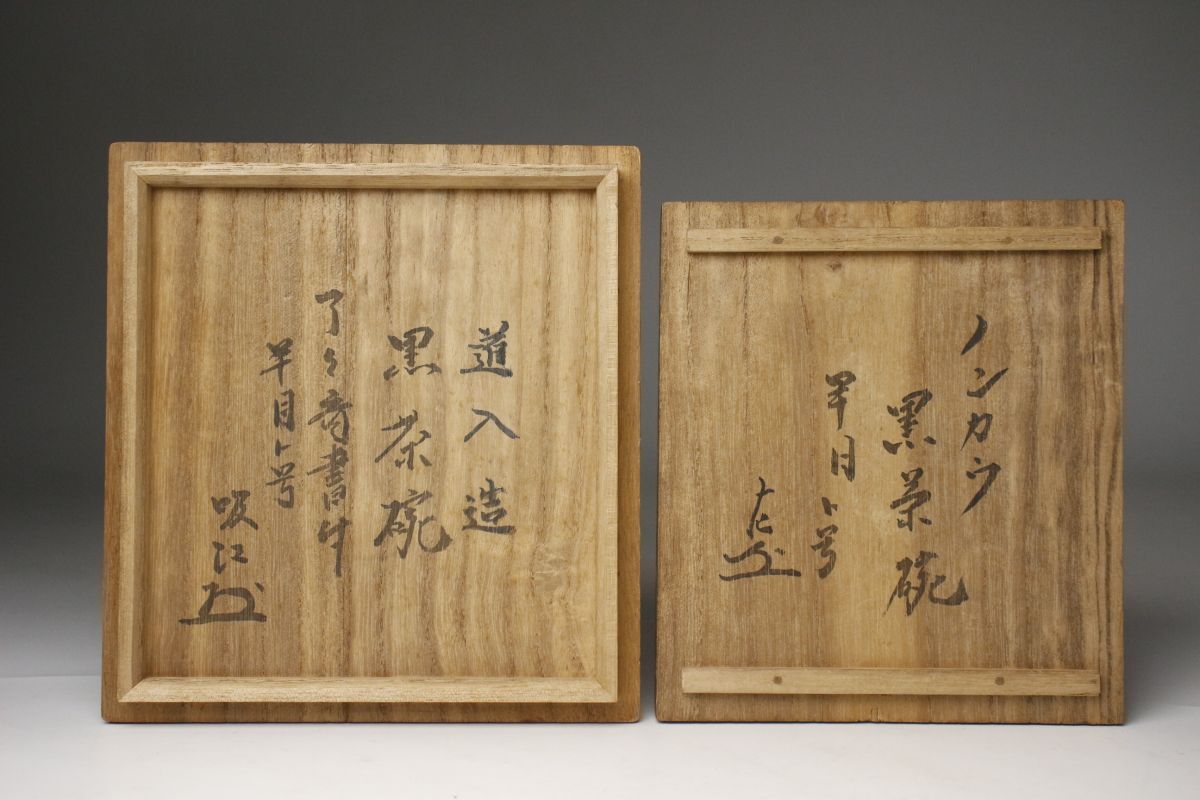 道入造
黒茶碗
了々斎書付
半月ト号
吸江
ノンカウ
黒茶碗
半月ト号
左